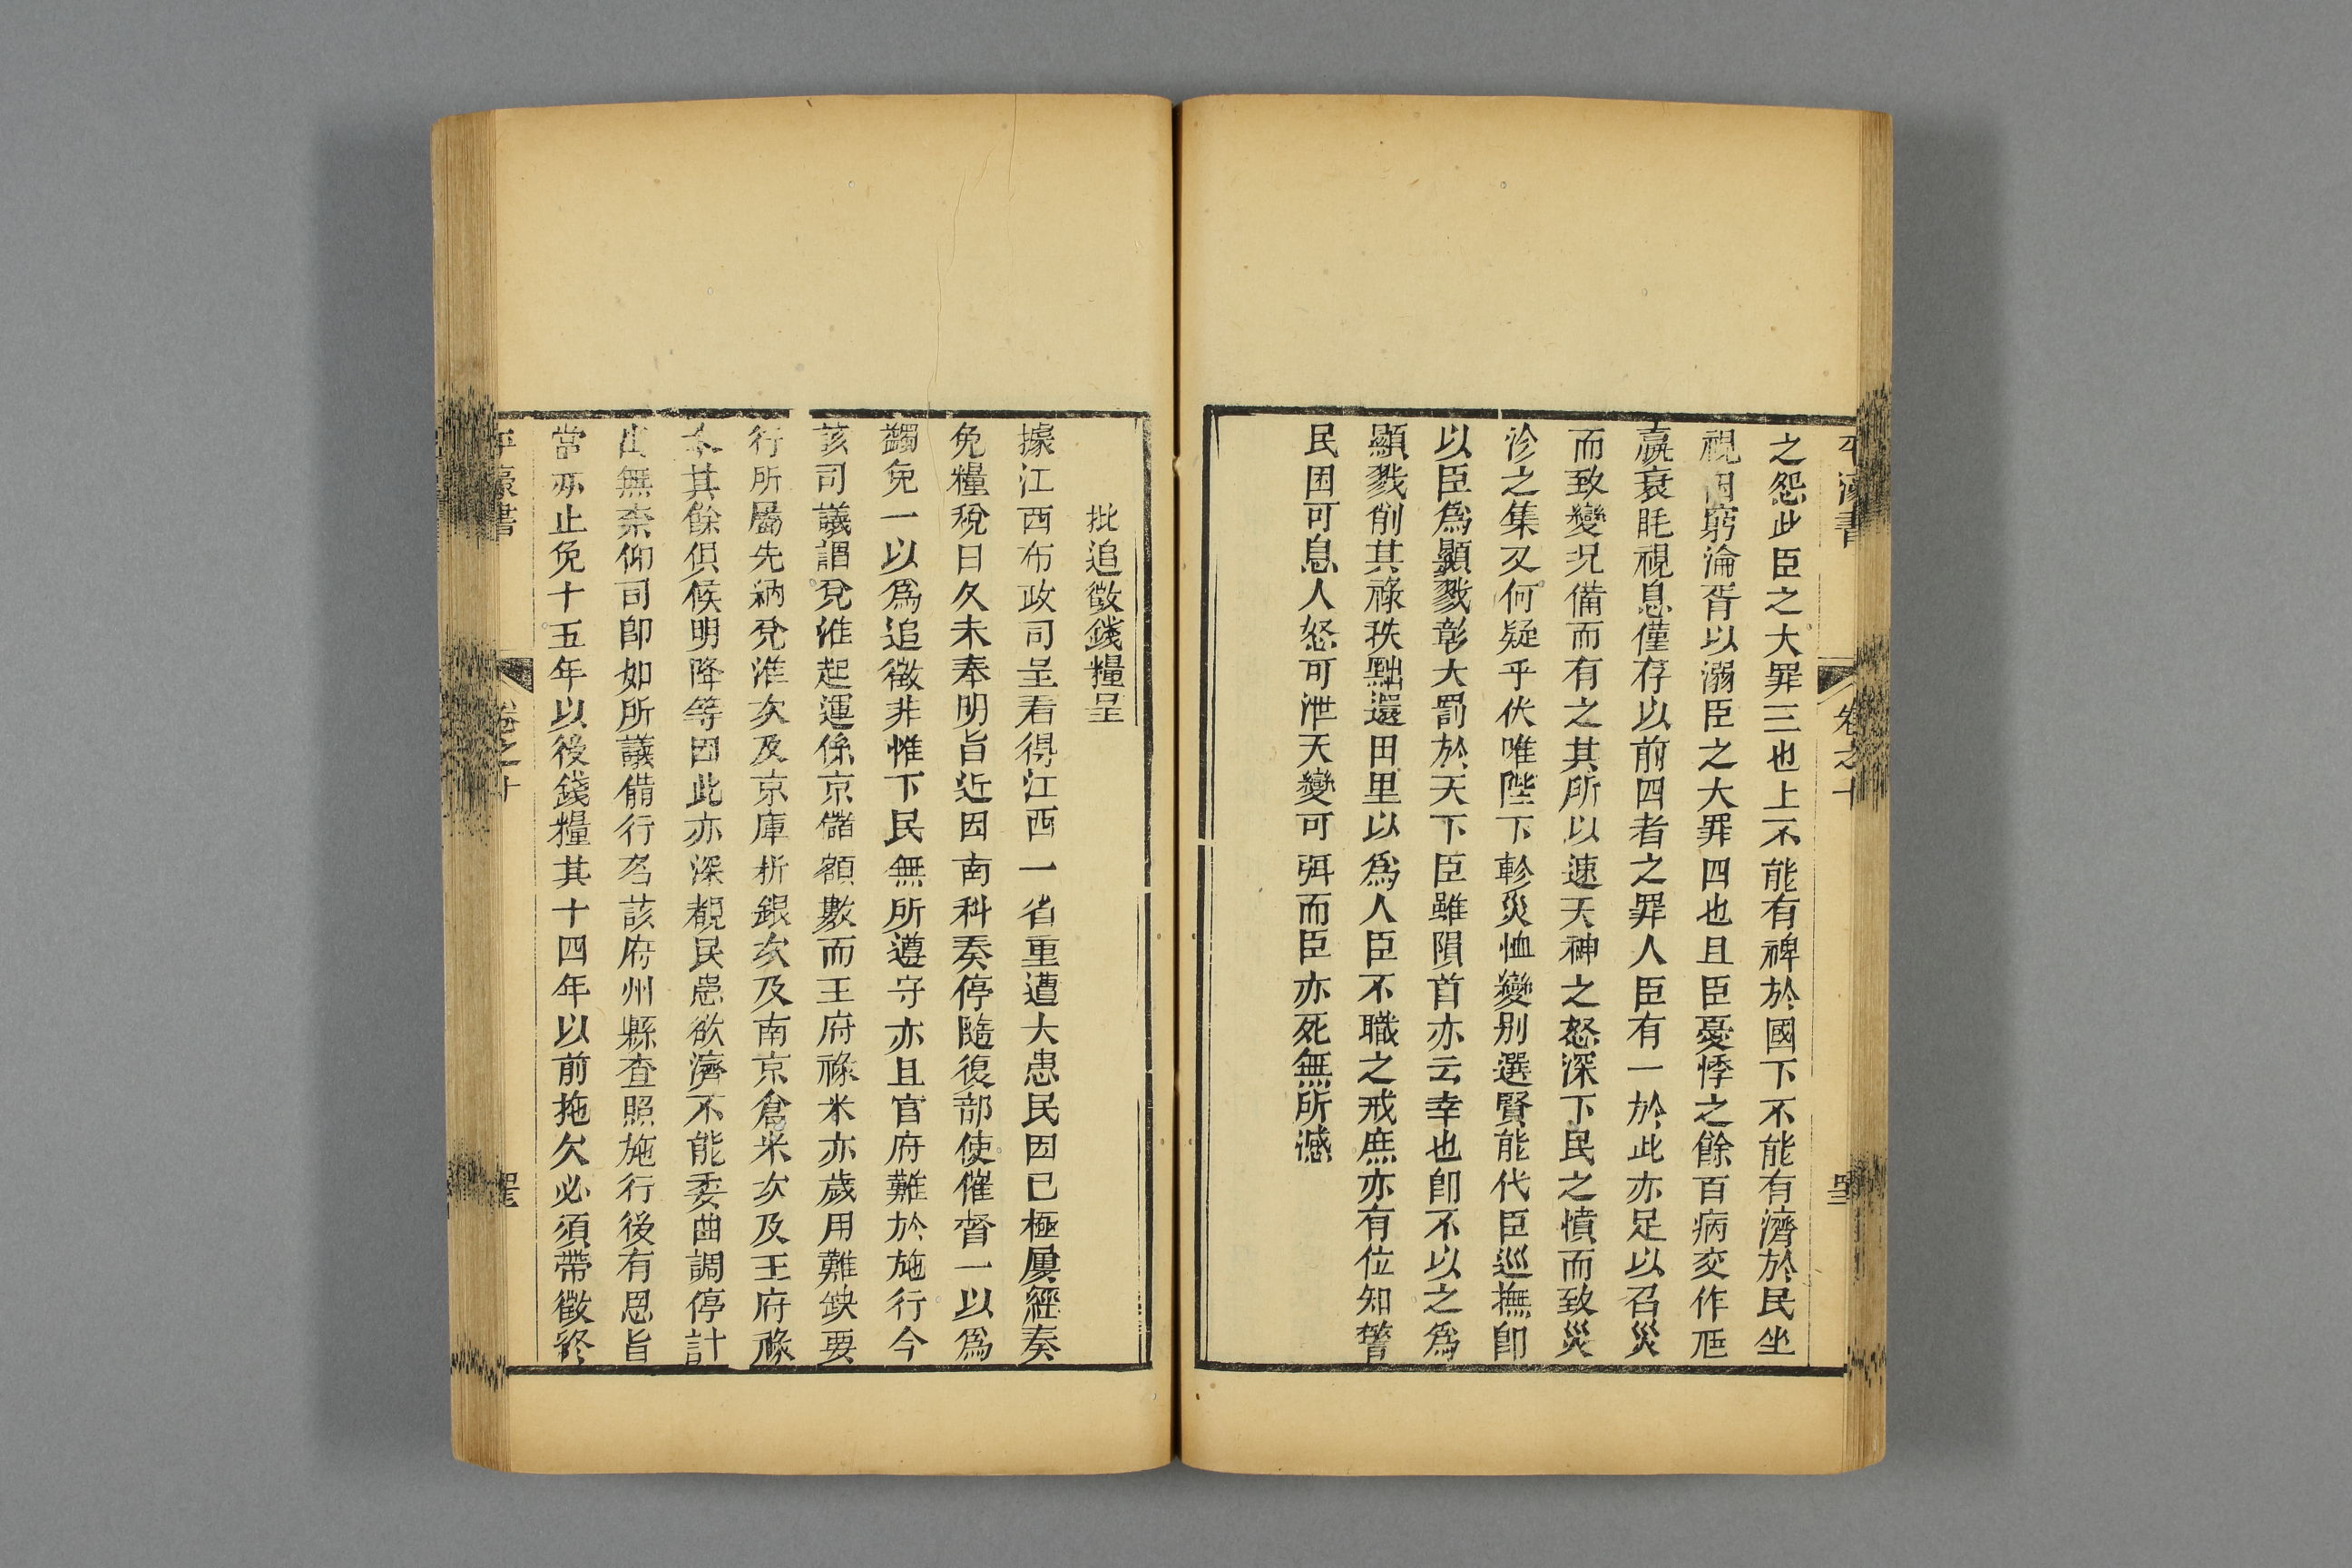 平濠書 卷之十
之怨此臣之大罪三也上不能有裨於國下不能有濟於民坐
視困窮淪胥以溺臣之大罪四也且臣憂悸之餘百病交作尫
羸衰眊視息僅存以前四者之罪人臣有一於此亦足以召災
而致變况備而有之其所以速天神之怒深下民之憤而致災
沴之集又何疑乎伏唯陛下軫災恤變别選賢能代臣巡撫卽
以臣爲顯戮彰大罰於天下臣雖隕首亦云幸也卽不以之爲
顯戮削其祿秩黜還田里以爲人臣不職之戒庶亦有位知警
民困可息人怒可泄天變可弭而臣亦死無所憾
批追徵錢糧呈
據江西布政司呈看得江西一省重遭大患民困已極屢經奏
免糧稅日久未奉明旨近因南科奏停隨復部使催督一以爲
蠲免一以爲追徵非惟下民無所遵守亦且官府難於施行今
該司議謂兌淮起運係京儲額數而王府祿米亦歲用難缺要
行所屬先納兌淮次及京庫折銀次及南京倉米次及王府祿
米其餘俱候明降等因此亦深覩民患欲濟不能委曲調停計
出無柰仰司卽如所議備行各該府州縣查照施行後有恩旨
當亦止免十五年以後錢糧其十四年以前拖欠必須帶徵終
平濠書 卷之十